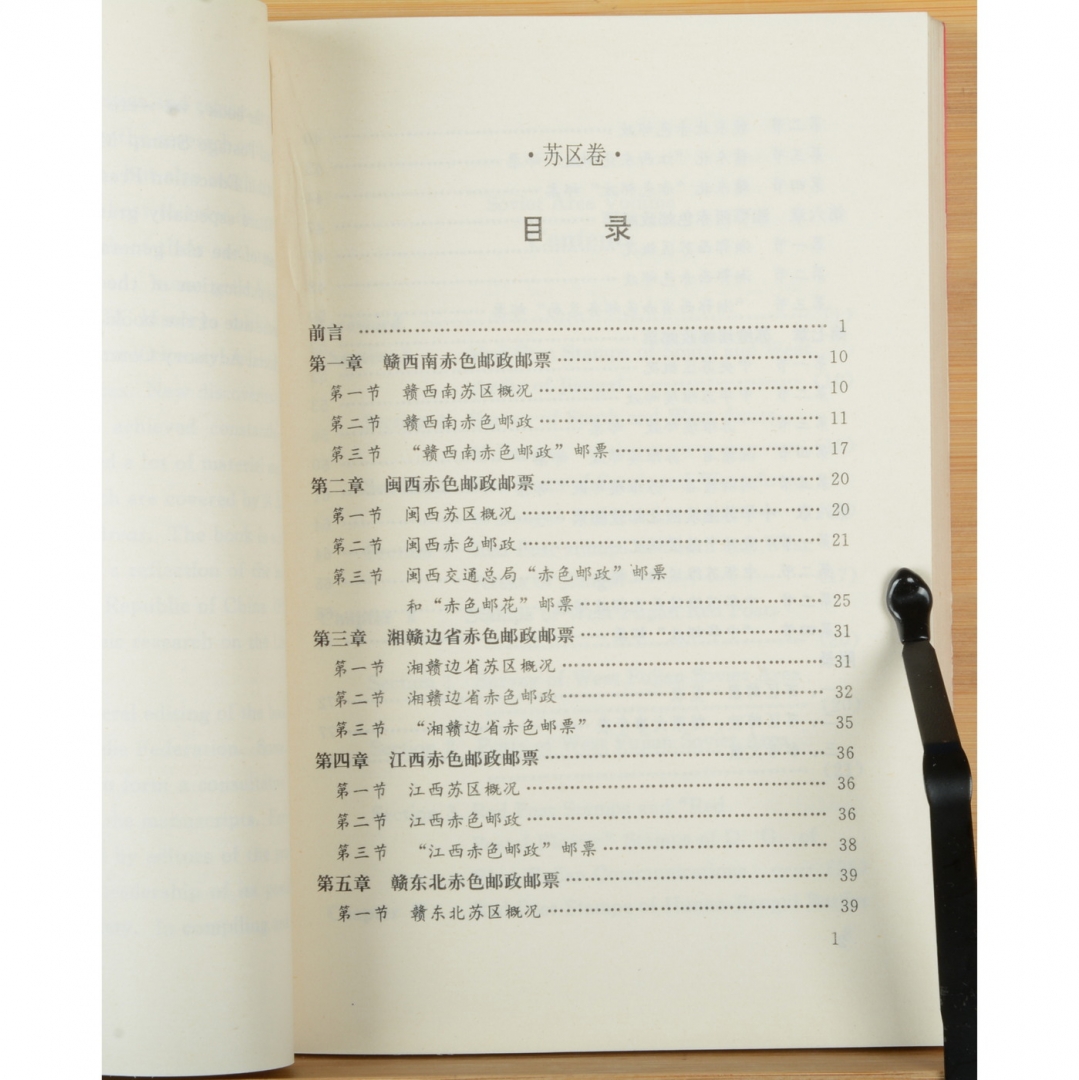 ·苏区卷·
目 录
前言 …………………………………………………… 1
第一章 赣西南赤色邮政邮票 …………………………… 10
第一节 赣西南苏区概况 ……………………………… 10
第二节 赣西南赤色邮政 ……………………………… 11
第三节 “赣西南赤色邮政”邮票 ……………………… 17
第二章 闽西赤色邮政邮票 ……………………………… 20
第一节 闽西苏区概况 ………………………………… 20
第二节 闽西赤色邮政 ………………………………… 21
第三节 闽西交通总局“赤色邮政”邮票
和“赤色邮花”邮票 …………………………… 25
第三章 湘赣边省赤色邮政邮票 ………………………… 31
第一节 湘赣边省苏区概况 …………………………… 31
第二节 湘赣边省赤色邮政 …………………………… 32
第三节 “湘赣边省赤色邮票” ………………………… 35
第四章 江西赤色邮政邮票 ……………………………… 36
第一节 江西苏区概况 ………………………………… 36
第二节 江西赤色邮政 ………………………………… 36
第三节 “江西赤色邮政”邮票 ………………………… 38
第五章 赣东北赤色邮政邮票 …………………………… 39
第一节 赣东北苏区概况 ……………………………… 39
1